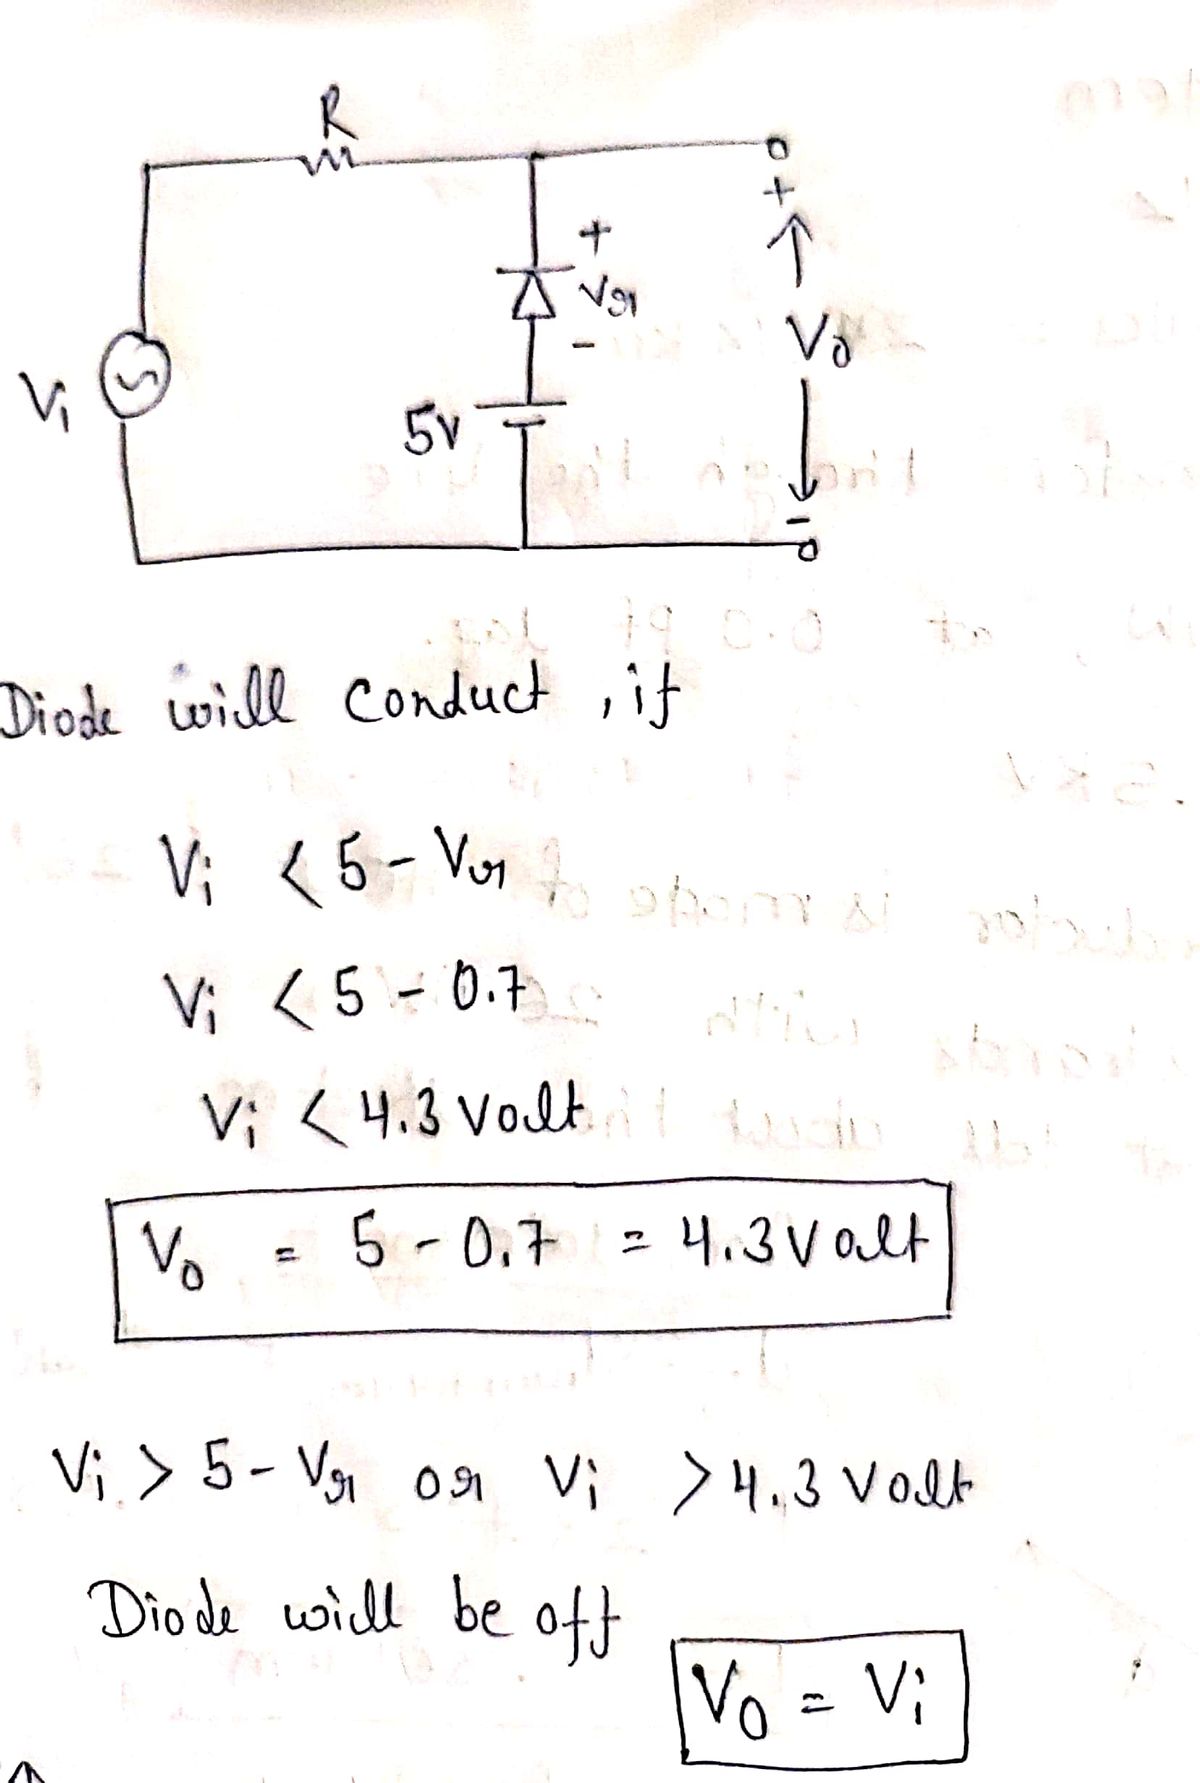 R
+
+
Vr
-
Vo
Vi
5V
-
Diode will conduct, if
Vi < 5 - Vr
Vi < 5 - 0.7
Vi < 4.3 Volt
Vo = 5 - 0.7 = 4.3 Volt
Vi > 5 - Vr or Vi > 4.3 Volt
Diode will be off
Vo = Vi